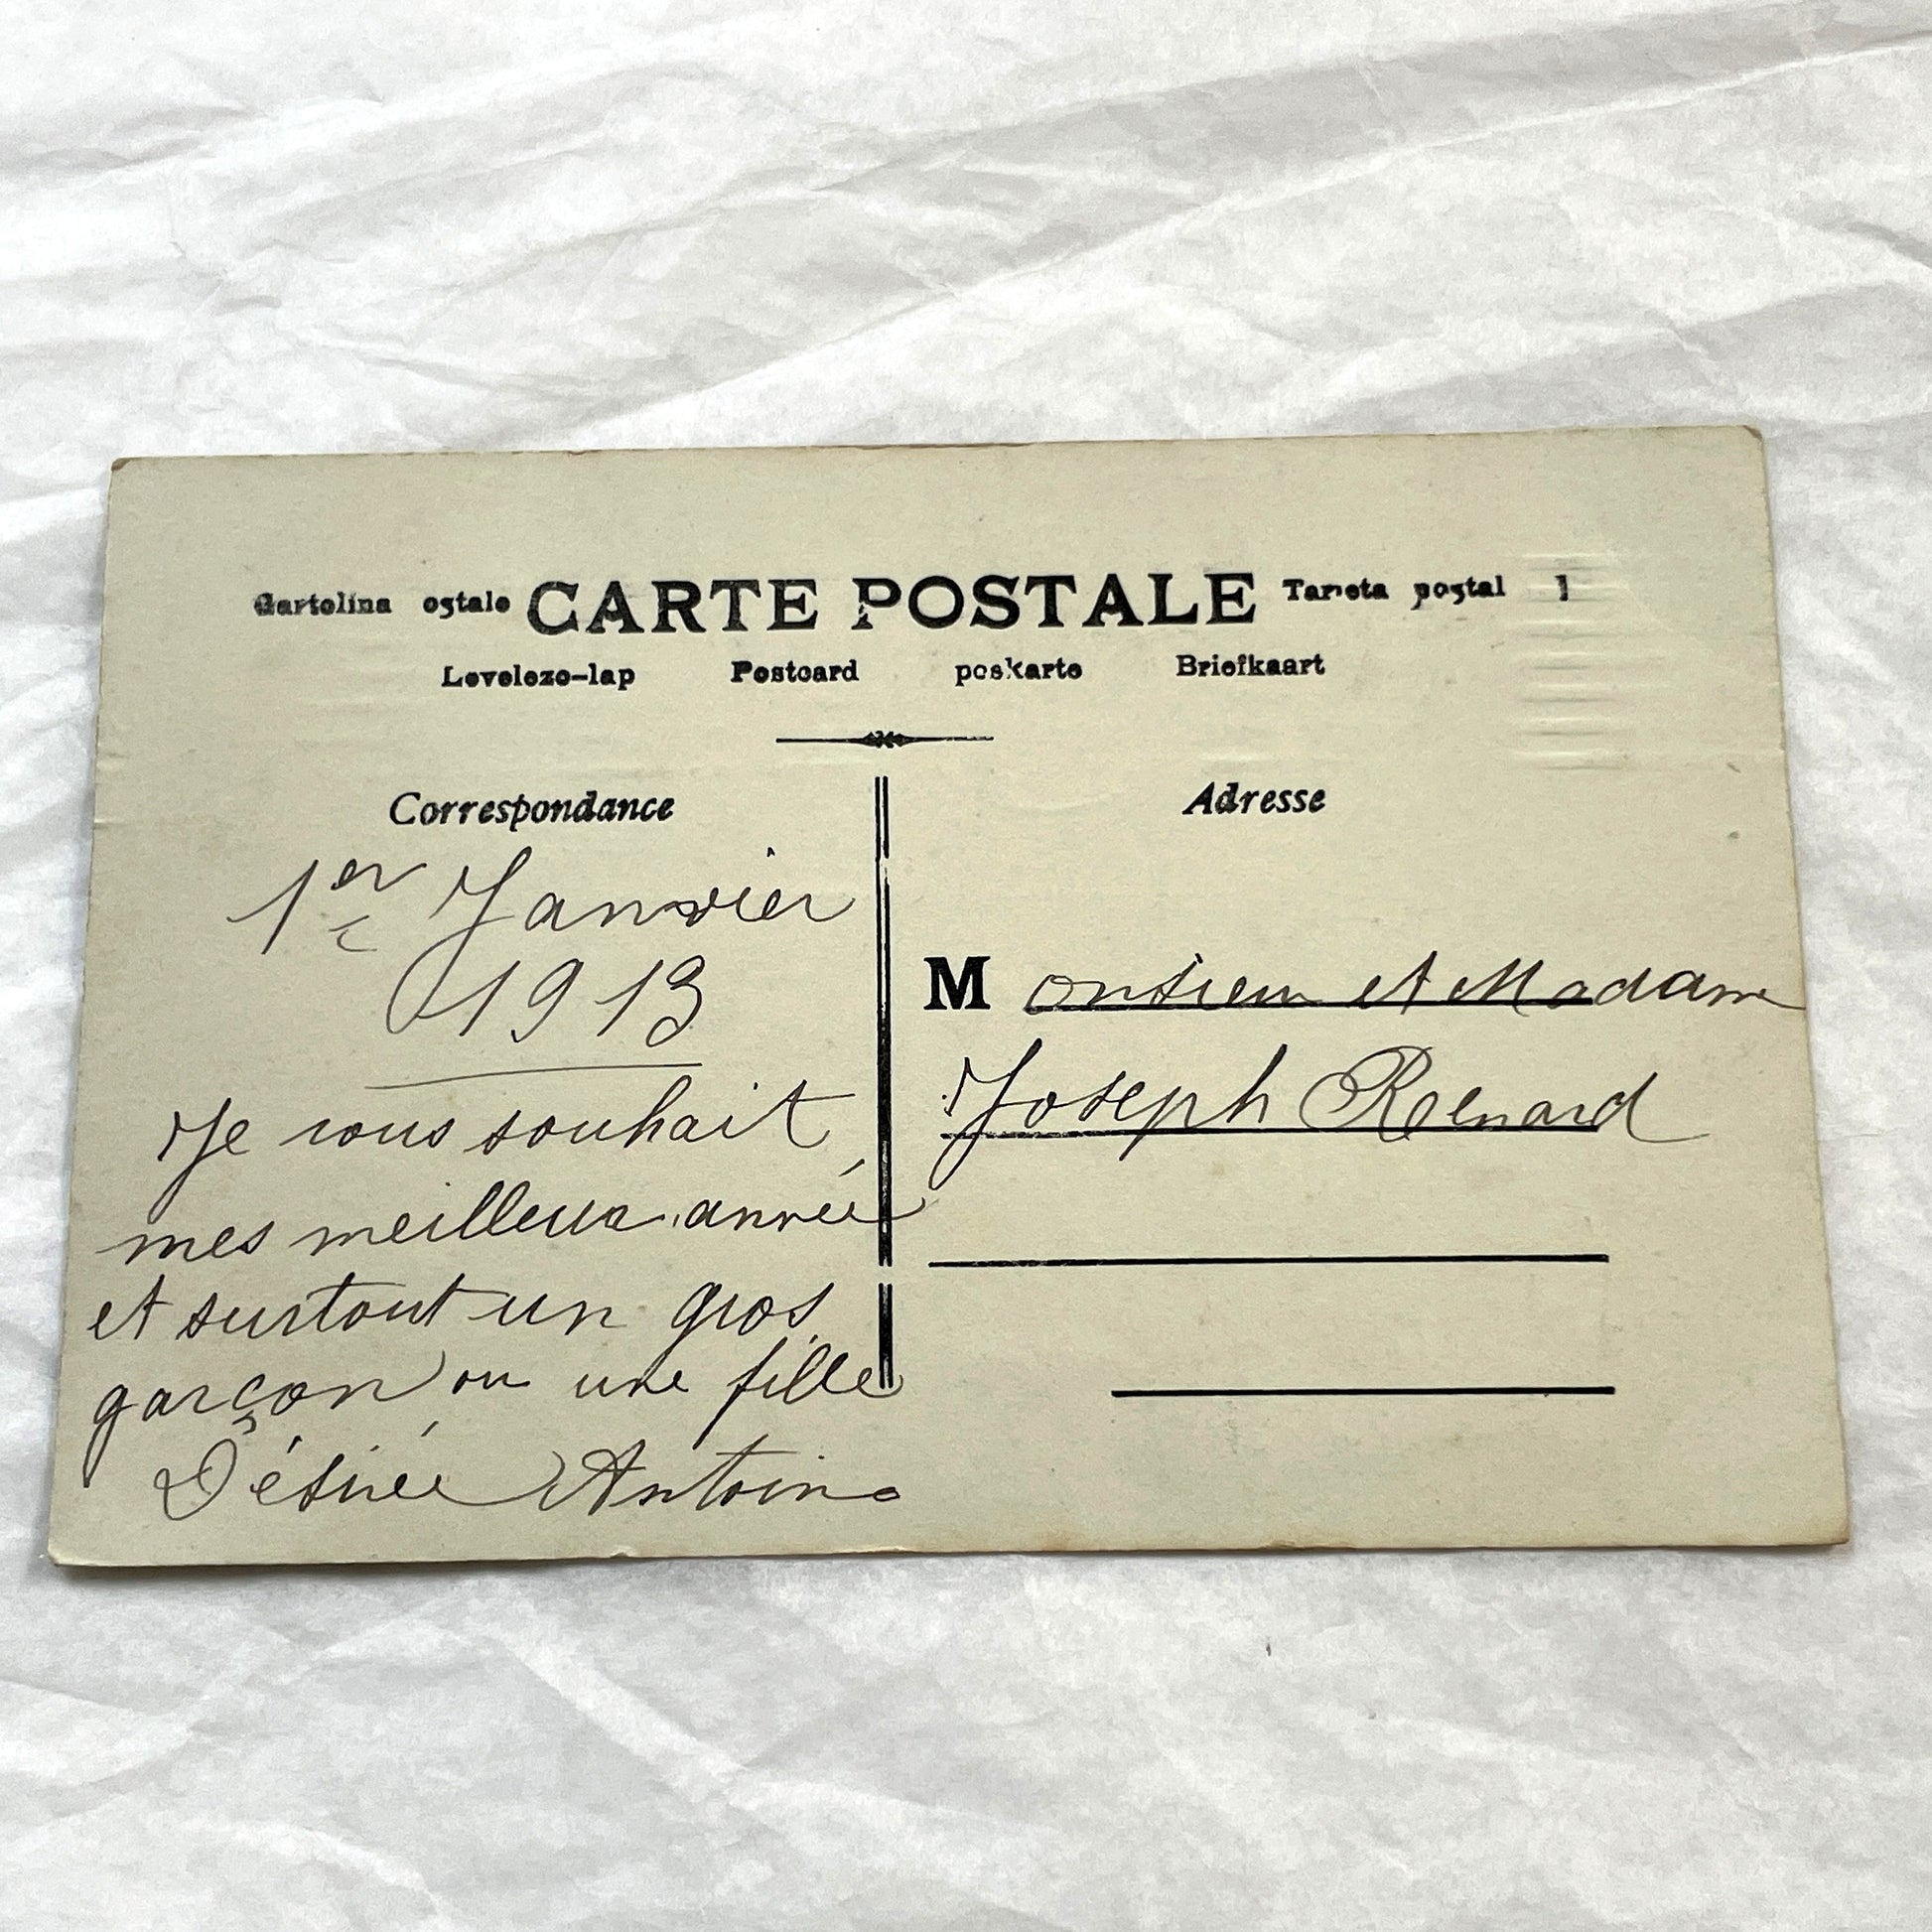 Cartolina ostale CARTE POSTALE Tarieta postal
Levelezo-lap Postcard poskarte Briefkaart
Correspondance
1er Janvier
1913
Je vous souhait
mes meilleur année
et surtout un gros
garçon ou une fille
Désirée Antoine
Adresse
Monsieur et Madame
Joseph Renard